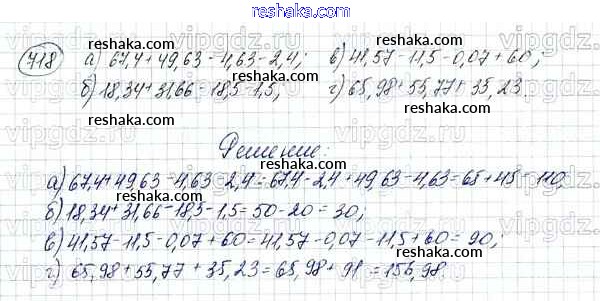 reshaka.com
718 а) 67,4+49,63-4,63-2,4; в) 41,57-11,5-0,07+60;
б) 18,34+31,66-18,5-1,5; г) 65,98+55,77+35,23.
Решение:
а) 67,4+49,63-4,63-2,4=67,4-2,4+49,63-4,63=65+45=110;
б) 18,34+31,66-18,5-1,5=50-20=30;
в) 41,57-11,5-0,07+60=41,57-0,07-11,5+60=90;
г) 65,98+55,77+35,23=65,98+91=156,98.
reshaka.com